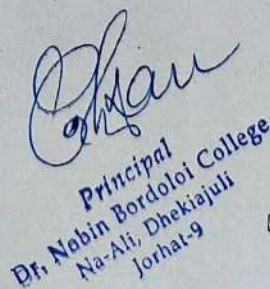 Principal
Dr. Nobin Bordoloi College
Na-Ali, Dhekiajuli
Jorhat-9